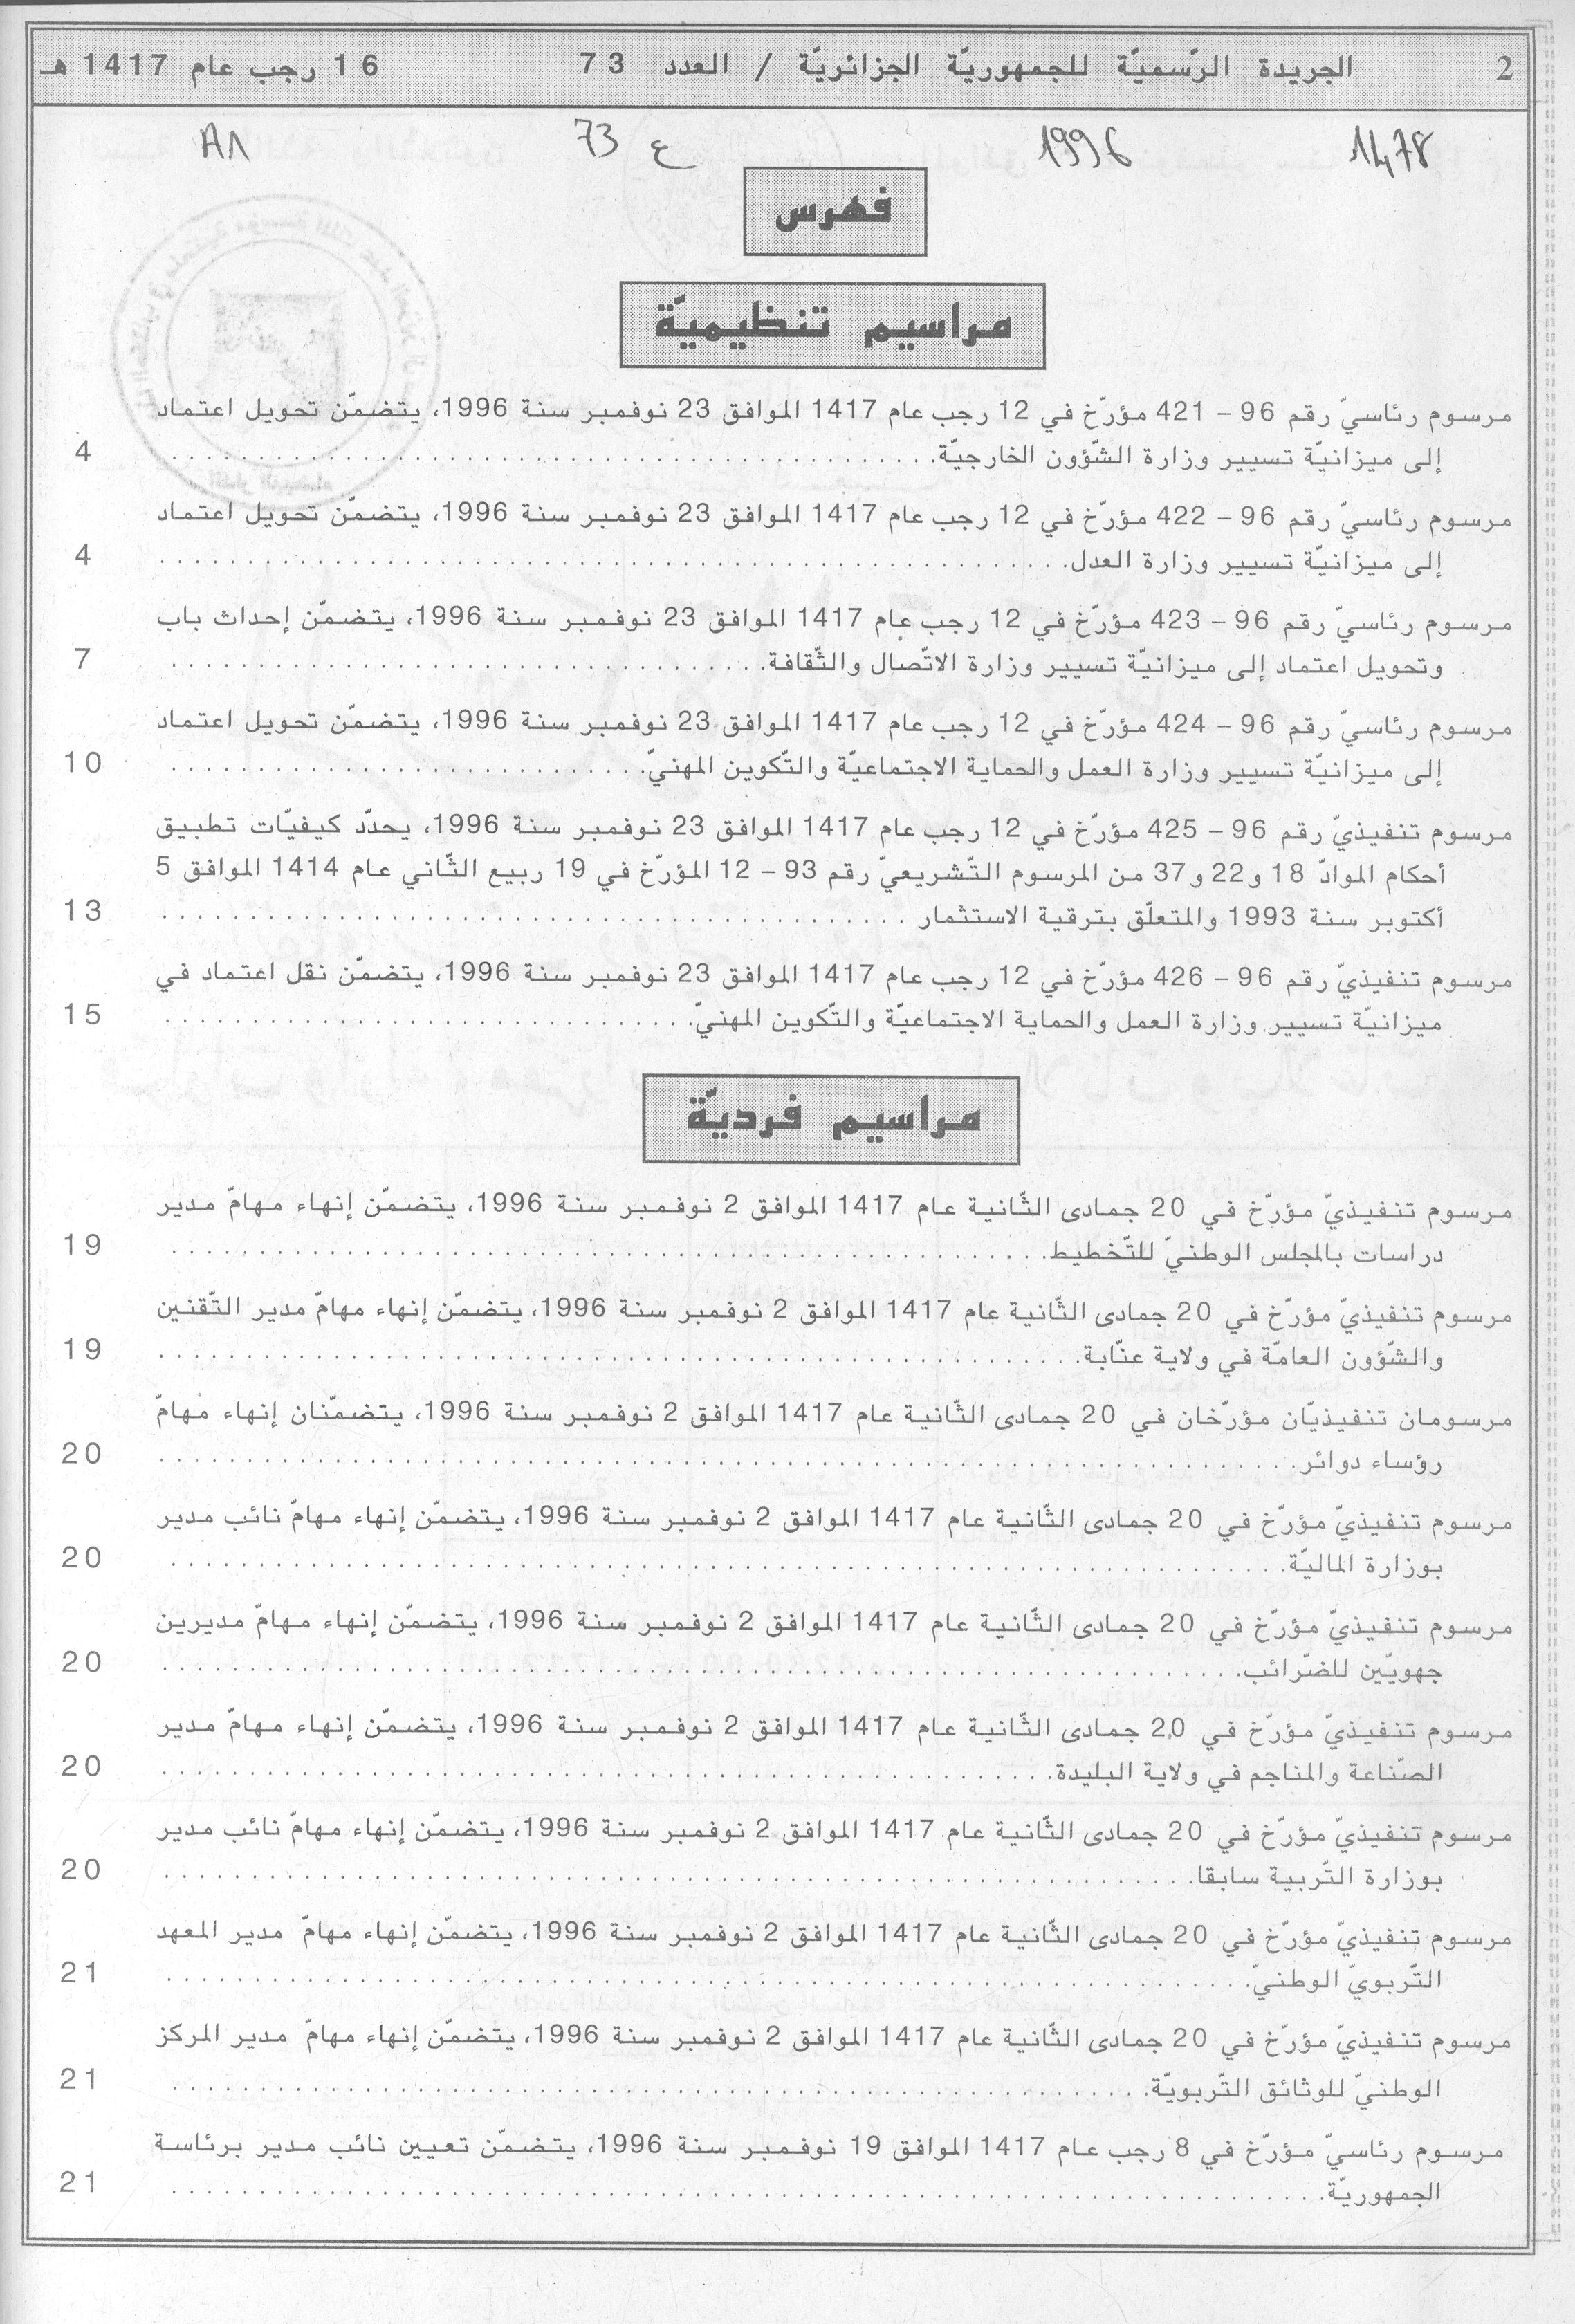 2 الجريدة الرّسميّة للجمهوريّة الجزائريّة / العدد 73 16 رجب عام 1417 هـ
1478 1996 ع 73 A1
فهرس
مراسيم تنظيميّة
مرسوم رئاسيّ رقم 96 – 421 مؤرّخ في 12 رجب عام 1417 الموافق 23 نوفمبر سنة 1996، يتضمّن تحويل اعتماد
إلى ميزانيّة تسيير وزارة الشّؤون الخارجيّة. 4
مرسوم رئاسيّ رقم 96 – 422 مؤرّخ في 12 رجب عام 1417 الموافق 23 نوفمبر سنة 1996، يتضمّن تحويل اعتماد
إلى ميزانيّة تسيير وزارة العدل. 4
مرسوم رئاسيّ رقم 96 – 423 مؤرّخ في 12 رجب عام 1417 الموافق 23 نوفمبر سنة 1996، يتضمّن إحداث باب
وتحويل اعتماد إلى ميزانيّة تسيير وزارة الاتّصال والثّقافة. 7
مرسوم رئاسيّ رقم 96 – 424 مؤرّخ في 12 رجب عام 1417 الموافق 23 نوفمبر سنة 1996، يتضمّن تحويل اعتماد
إلى ميزانيّة تسيير وزارة العمل والحماية الاجتماعيّة والتّكوين المهنيّ. 10
مرسوم تنفيذيّ رقم 96 – 425 مؤرّخ في 12 رجب عام 1417 الموافق 23 نوفمبر سنة 1996، يحدّد كيفيّات تطبيق
أحكام الموادّ 18 و22 و37 من المرسوم التّشريعيّ رقم 93 – 12 المؤرّخ في 19 ربيع الثّاني عام 1414 الموافق 5
أكتوبر سنة 1993 والمتعلّق بترقية الاستثمار 13
مرسوم تنفيذيّ رقم 96 – 426 مؤرّخ في 12 رجب عام 1417 الموافق 23 نوفمبر سنة 1996، يتضمّن نقل اعتماد في
ميزانيّة تسيير وزارة العمل والحماية الاجتماعيّة والتّكوين المهنيّ. 15
مراسيم فرديّة
مرسوم تنفيذيّ مؤرّخ في 20 جمادى الثّانية عام 1417 الموافق 2 نوفمبر سنة 1996، يتضمّن إنهاء مهامّ مدير
دراسات بالمجلس الوطنيّ للتّخطيط. 19
مرسوم تنفيذيّ مؤرّخ في 20 جمادى الثّانية عام 1417 الموافق 2 نوفمبر سنة 1996، يتضمّن إنهاء مهامّ مدير التّقنين
والشّؤون العامّة في ولاية عنّابة. 19
مرسومان تنفيذيّان مؤرّخان في 20 جمادى الثّانية عام 1417 الموافق 2 نوفمبر سنة 1996، يتضمّنان إنهاء مهامّ
رؤساء دوائر. 20
مرسوم تنفيذيّ مؤرّخ في 20 جمادى الثّانية عام 1417 الموافق 2 نوفمبر سنة 1996، يتضمّن إنهاء مهامّ نائب مدير
بوزارة الماليّة. 20
مرسوم تنفيذيّ مؤرّخ في 20 جمادى الثّانية عام 1417 الموافق 2 نوفمبر سنة 1996، يتضمّن إنهاء مهامّ مديرين
جهويّين للضّرائب. 20
مرسوم تنفيذيّ مؤرّخ في 20 جمادى الثّانية عام 1417 الموافق 2 نوفمبر سنة 1996، يتضمّن إنهاء مهامّ مدير
الصّناعة والمناجم في ولاية البليدة. 20
مرسوم تنفيذيّ مؤرّخ في 20 جمادى الثّانية عام 1417 الموافق 2 نوفمبر سنة 1996، يتضمّن إنهاء مهامّ نائب مدير
بوزارة التّربية سابقا. 20
مرسوم تنفيذيّ مؤرّخ في 20 جمادى الثّانية عام 1417 الموافق 2 نوفمبر سنة 1996، يتضمّن إنهاء مهامّ مدير المعهد
التّربويّ الوطنيّ. 21
مرسوم تنفيذيّ مؤرّخ في 20 جمادى الثّانية عام 1417 الموافق 2 نوفمبر سنة 1996، يتضمّن إنهاء مهامّ مدير المركز
الوطنيّ للوثائق التّربويّة. 21
مرسوم رئاسيّ مؤرّخ في 8 رجب عام 1417 الموافق 19 نوفمبر سنة 1996، يتضمّن تعيين نائب مدير برئاسة
الجمهوريّة. 21